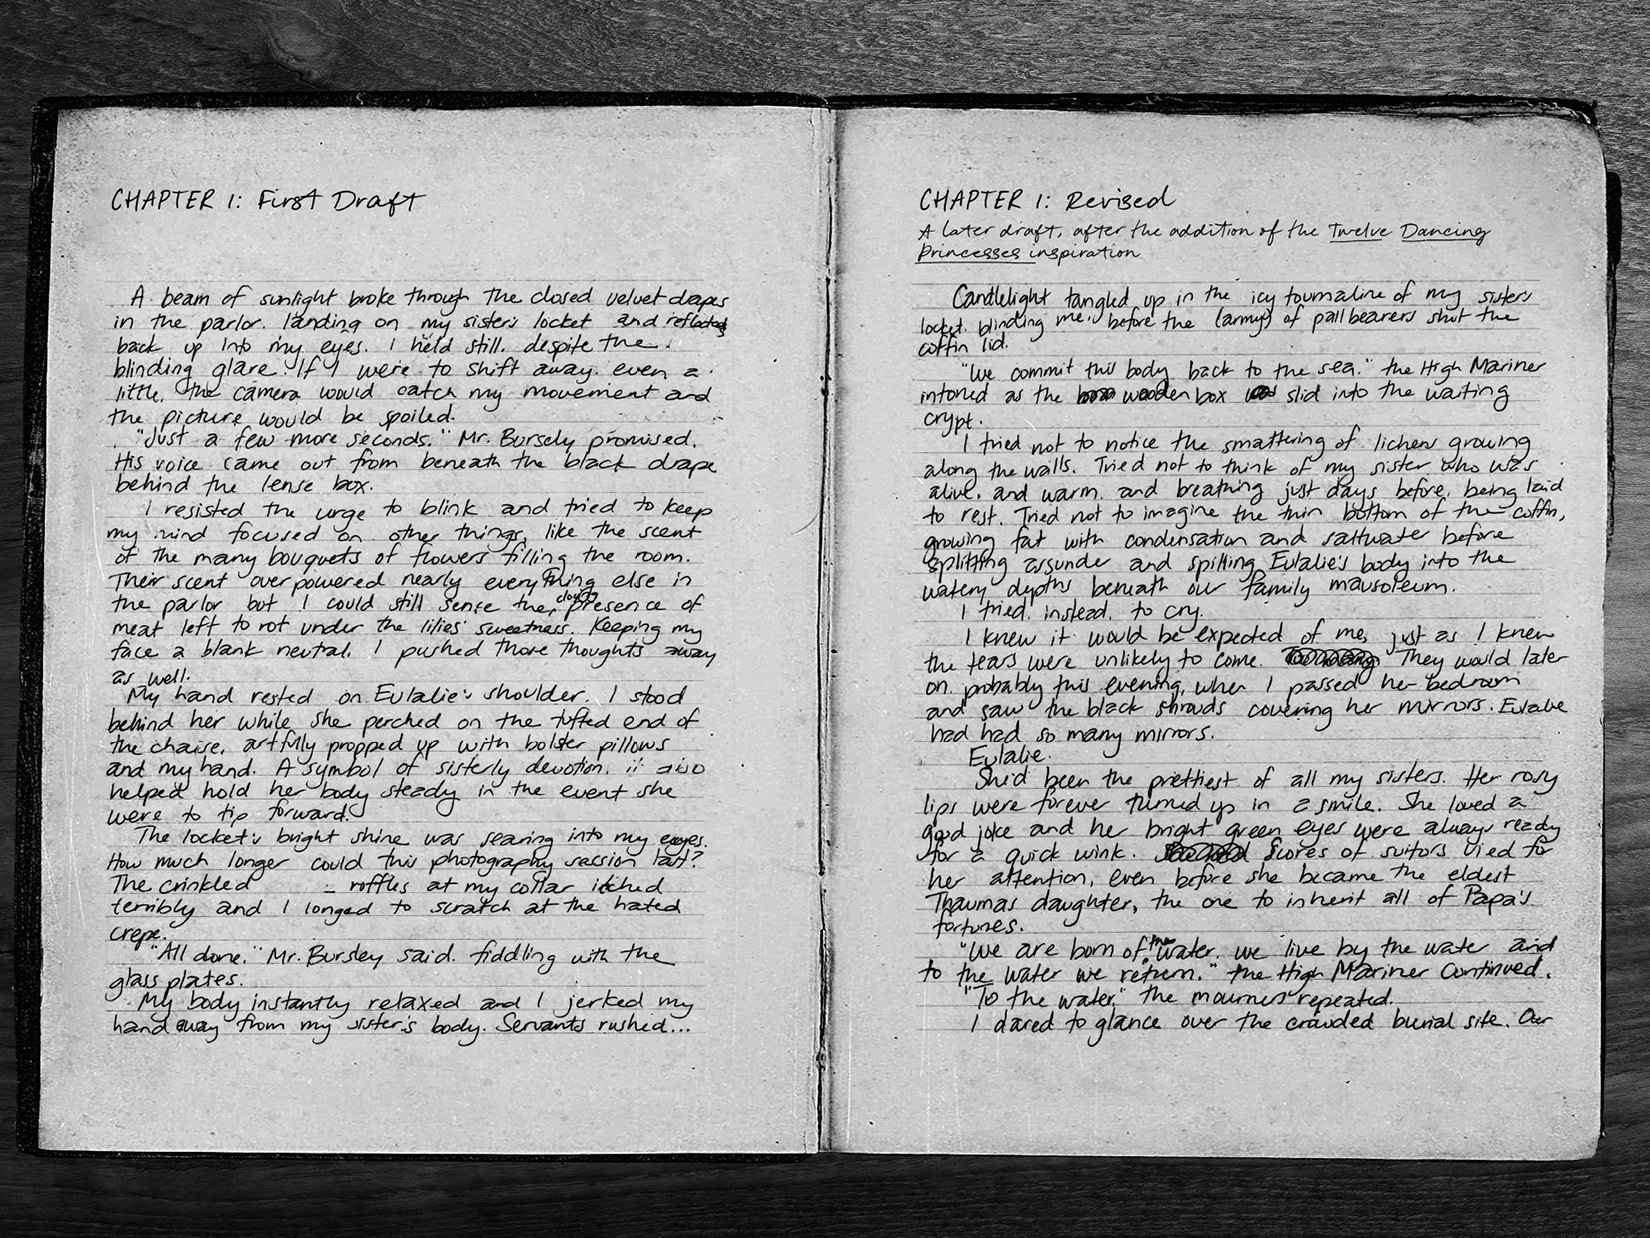 CHAPTER 1: First Draft
A beam of sunlight broke through the closed velvet drapes
in the parlor. landing on my sister's locket and reflected
back up into my eyes. I held still. despite the
blinding glare. If I were to shift away. even a
little, the camera would catch my movement and
the picture would be spoiled.
"Just a few more seconds." Mr. Bursely promised.
His voice came out from beneath the black drape
behind the lense box.
I resisted the urge to blink and tried to keep
my mind focused on other things, like the scent
of the many bouquets of flowers filling the room.
Their scent overpowered nearly everything else in
the parlor but I could still sense the cloying presence of
meat left to rot under the lilies' sweetness. Keeping my
face a blank neutral, I pushed those thoughts away
as well.
My hand rested on Eulalie's shoulder. I stood
behind her while she perched on the tufted end of
the chaise, artfully propped up with bolster pillows
and my hand. A symbol of sisterly devotion. it also
helped hold her body steady in the event she
were to tip forward.
The locket's bright shine was searing into my eyes.
How much longer could this photography session last?
The crinkled ruffles at my collar itched
terribly and I longed to scratch at the hated
crepe.
"All done." Mr. Bursley said. fiddling with the
glass plates.
My body instantly relaxed and I jerked my
hand away from my sister's body. Servants rushed...
CHAPTER 1: Revised
A later draft, after the addition of the Twelve Dancing
Princesses inspiration
Candlelight tangled up in the icy tourmaline of my sister's
locket. blinding me, before the (army) of pallbearers shut the
coffin lid.
"We commit this body back to the sea." the High Mariner
intoned as the wooden box slid into the waiting
crypt.
I tried not to notice the smattering of lichen growing
along the walls. Tried not to think of my sister who was
alive, and warm, and breathing just days before, being laid
to rest. Tried not to imagine the thin bottom of the coffin,
growing fat with condensation and saltwater before
splitting assunder and spilling Eulalie's body into the
watery depths beneath our family mausoleum.
I tried, instead, to cry.
I knew it would be expected of me, just as I knew
the tears were unlikely to come. They would later
on, probably this evening, when I passed her bedroom
and saw the black shrouds covering her mirrors. Eulalie
had had so many mirrors.
Eulalie.
She'd been the prettiest of all my sisters. Her rosy
lips were forever turned up in a smile. She loved a
good joke and her bright green eyes were always ready
for a quick wink. Scores of suitors vied for
her attention, even before she became the eldest
Thaumas daughter, the one to inherit all of Papa's
fortunes.
"We are born of the water, we live by the water and
to the water we return." the High Mariner continued.
"To the water," the mourners repeated.
I dared to glance over the crowded burial site. Our